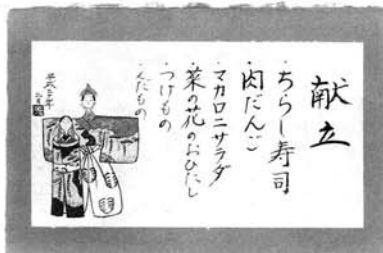 献立
・ちらし寿司
・肉だんご
・マカロニサラダ
・菜の花のおひたし
・つけもの
・くだもの